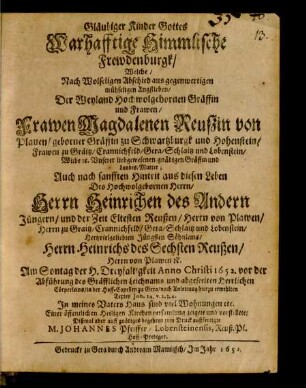 Gläubiger Kinder Gottes
Warhafftige Himmlische
Frewdenburgk/
Welche/
Nach Wolseligen Abschied aus gegenwertigen
mühseligen Angstleben/
Der Weyland Hochwolgebornen Gräffin
und Frawen/
Frawen Magdalenen Reußin von
Plauen/ geborner Gräffin zu Schwartzburgk und Hohenstein/
Frawen zu Graitz/ Crannichfeld/ Gera/ Schlaitz und Lobenstein/
Witbe ꝛc. Unserer liebgewesenen gnädigen Gräffin und
Landes-Mutter;
Auch nach sanfften Hintrit aus diesen Leben
Des Hochwolgebornen Herrn/
Herrn Heinrichen des Andern
Jüngern/ und der Zeit Eltesten Reußen/ Herrn von Plawen/
Herrn zu Graitz/ Crannichfeld/ Gera/ Schlaitz und Lobenstein/
Hertzvielgeliebten Jüngsten Söhnleins/
Herrn Heinrichs des Sechsten Reußen/
Herrn von Plawen ꝛc.
Am Sontag der H. Dreyfaltigkeit Anno Christi 1652. vor der
Abführung des Gräfflichen Leichnams und abgeseelten Herrlichen
Cörperleins/ in der Hoff-Capell zu Gera nach Anleitung
Textes Joh. 14. v. 2. 3. 4.
In meines Vaters Haus sind viel Wohnungen etc.
Einer öffentlichen Heiligen Kirchenversamlung zeigete und vorstellete/
Dißmal aber auff gnädiges begehren zum Druck ausfertigte
M. JOHANNES Pfeiffer/ Lobensteinensis, Reuß. Pl.
Hoff-Prediger.
Gedruckt zu Gera durch Andream Mamitzsch/ Im Jahr 1652.
13.